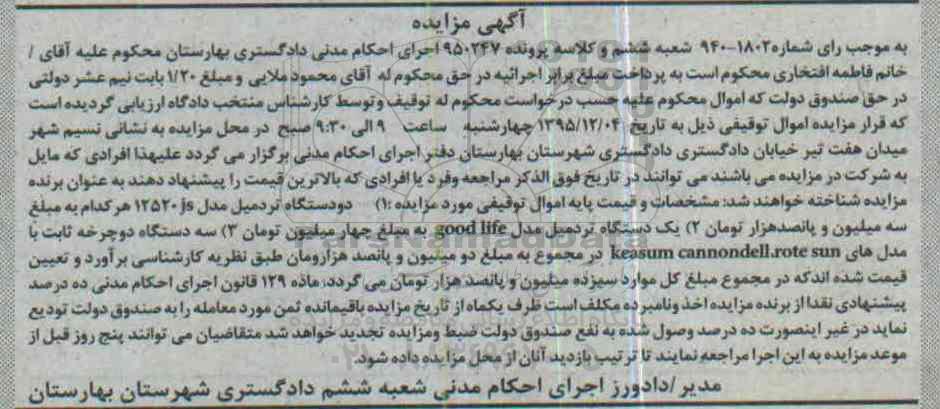 آگهی مزایده
به موجب رای شماره ۱۸۰۲-۹۴۰ شعبه ششم و کلاسه پرونده ۹۵۰۲۴۷ اجرای احکام مدنی دادگستری بهارستان محکوم علیه آقای /
خانم فاطمه افتخاری محکوم است به پرداخت مبلغ برابر اجرائیه در حق محکوم له آقای محمود ملایی و مبلغ ۱/۲۰ بابت نیم عشر دولتی
در حق صندوق دولت که اموال محکوم علیه حسب درخواست محکوم له توقیف و توسط کارشناس منتخب دادگاه ارزیابی گردیده است
که قرار مزایده اموال توقیفی ذیل به تاریخ ۱۳۹۵/۱۲/۰۴ چهارشنبه ساعت ۹ الی ۹:۳۰ صبح در محل مزایده به نشانی نسیم شهر
میدان هفت تیر خیابان دادگستری دادگستری شهرستان بهارستان دفتر اجرای احکام مدنی برگزار می گردد علیهذا افرادی که مایل
به شرکت در مزایده می باشند می توانند در تاریخ فوق الذکر مراجعه وفرد یا افرادی که بالاترین قیمت را پیشنهاد دهند به عنوان برنده
مزایده شناخته خواهند شد: مشخصات و قیمت پایه اموال توقیفی مورد مزایده :۱) دودستگاه تردمیل مدل js ۱۲۵۲۰ هرکدام به مبلغ
سه میلیون و پانصدهزار تومان ۲) یک دستگاه تردمیل مدل good life به مبلغ چهار میلیون تومان ۳) سه دستگاه دوچرخه ثابت با
مدل های keasum cannondell.rote sun در مجموع به مبلغ دو میلیون و پانصد هزارومان طبق نظریه کارشناسی برآورد و تعیین
قیمت شده اندکه در مجموع مبلغ کل موارد سیزده میلیون و پانصد هزار تومان می گردد: ماده ۱۲۹ قانون اجرای احکام مدنی ده درصد
پیشنهادی نقدا از برنده مزایده اخذ ونامبرده مکلف است ظرف یکماه از تاریخ مزایده باقیمانده ثمن مورد معامله را به صندوق دولت تودیع
نماید در غیر اینصورت ده درصد وصول شده به نفع صندوق دولت ضبط ومزایده تجدید خواهد شد متقاضیان می توانند پنج روز قبل از
موعد مزایده به این اجرا مراجعه نمایند تا ترتیب بازدید آنان از محل مزایده داده شود.
مدیر /دادورز اجرای احکام مدنی شعبه ششم دادگستری شهرستان بهارستان
ParsNamadData